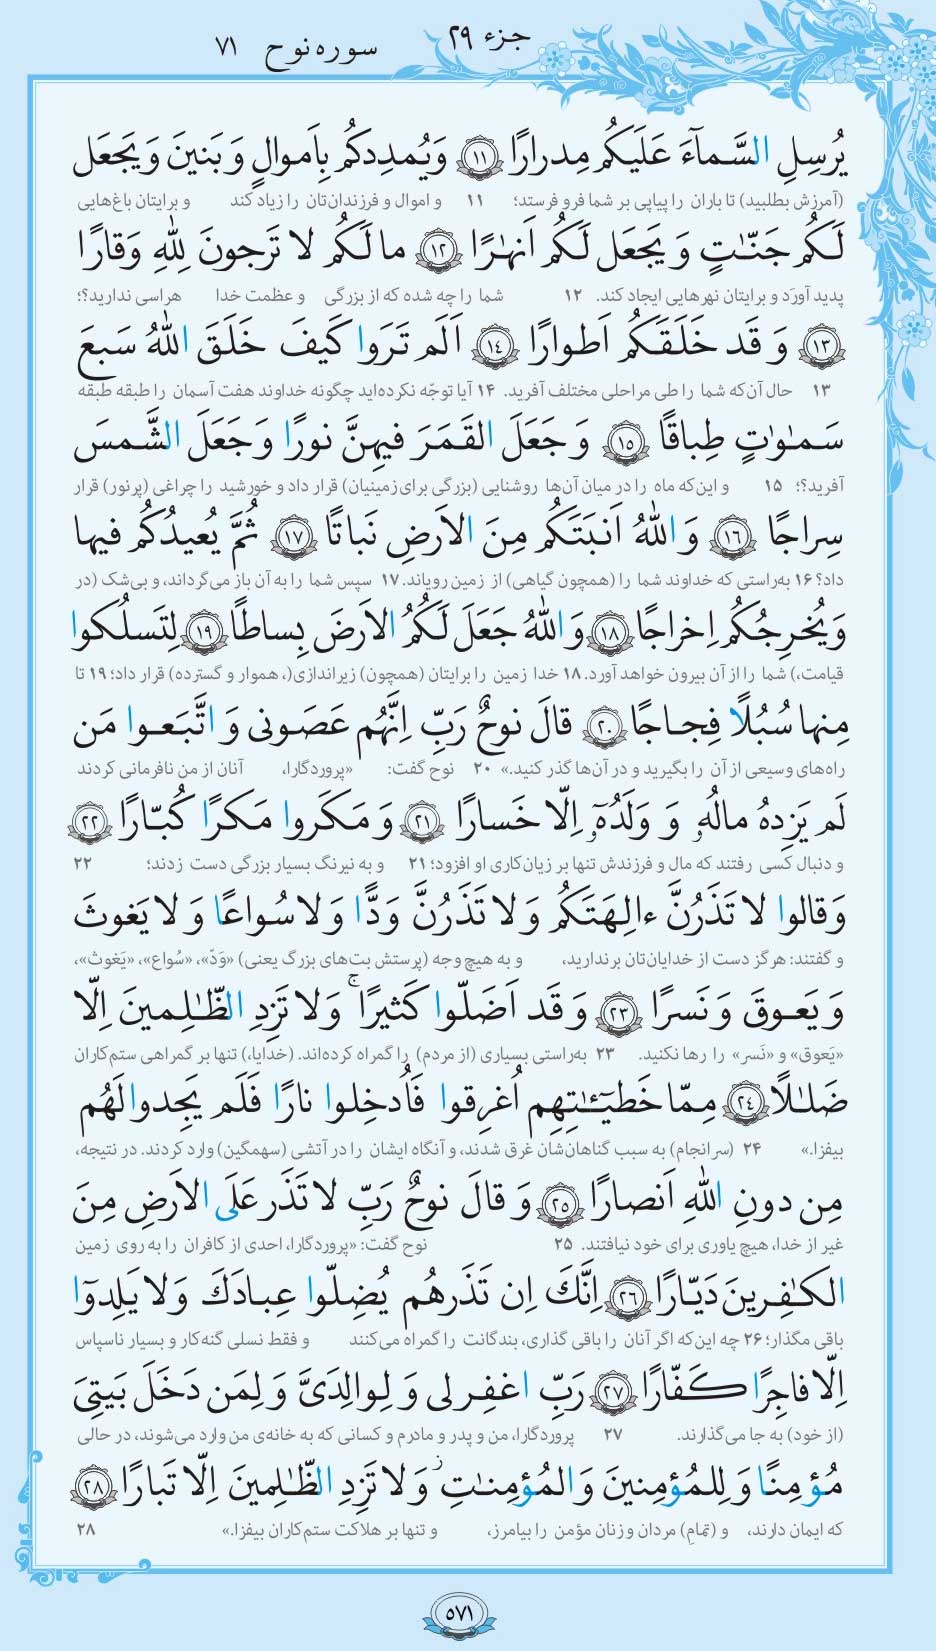 جزء ۲۹
سوره نوح ۷۱
يُرسِلِ السَّمآءَ عَلَيكُم مِدرارًا ﴿۱۱﴾ وَيُمدِدكُم بِاَموالٍ وَ بَنينَ وَ يَجعَل
(آمرزش بطلبید) تا باران را پیاپی بر شما فرو فرستد؛ ۱۱ و اموال و فرزندان‌تان را زیاد کند و برایتان باغ‌هایی
لَكُم جَنّٰتٍ وَ يَجعَل لَكُم اَنهٰرًا ﴿۱۲﴾ ما لَكُم لا تَرجونَ لِلّٰهِ وَقارًا
پدید آورَد و برایتان نهرهایی ایجاد کند. ۱۲ شما را چه شده که از بزرگی و عظمت خدا هراسی ندارید؟؛
﴿۱۳﴾ وَ قَد خَلَقَكُم اَطوارًا ﴿۱۴﴾ اَلَم تَرَوا كَيفَ خَلَقَ اللّٰهُ سَبعَ
۱۳ حال آن‌که شما را طی مراحلی مختلف آفرید. ۱۴ آیا توجّه نکرده‌اید چگونه خداوند هفت آسمان را طبقه طبقه
سَمٰوٰتٍ طِباقًا ﴿۱۵﴾ وَ جَعَلَ القَمَرَ فيهِنَّ نورًا وَ جَعَلَ الشَّمسَ
آفرید؟؛ ۱۵ و این‌که ماه را در میان آن‌ها روشنایی (بزرگی برای زمینیان) قرار داد و خورشید را چراغی (پرنور) قرار
سِراجًا ﴿۱۶﴾ وَ اللّٰهُ اَنبَتَكُم مِنَ الاَرضِ نَباتًا ﴿۱۷﴾ ثُمَّ يُعيدُكُم فيها
داد؟ ۱۶ به‌راستی که خداوند شما را (همچون گیاهی) از زمین رویاند. ۱۷ سپس شما را به آن باز می‌گرداند، و بی‌شک (در
وَيُخرِجُكُم اِخراجًا ﴿۱۸﴾ وَ اللّٰهُ جَعَلَ لَكُمُ الاَرضَ بِساطًا ﴿۱۹﴾ لِتَسلُكوا
قیامت،) شما را از آن بیرون خواهد آورد. ۱۸ خدا زمین را برایتان (همچون) زیراندازی(، هموار و گسترده) قرار داد؛ ۱۹ تا
مِنها سُبُلًا فِجاجًا ﴿۲۰﴾ قالَ نوحٌ رَبِّ اِنَّهُم عَصَونى وَ اتَّبَعوا مَن
راه‌های وسیعی از آن را بگیرید و در آن‌ها گذر کنید.» ۲۰ نوح گفت: «پروردگارا، آنان از من نافرمانی کردند
لَم يَزِدهُ مالُهُۥ وَ وَلَدُهُۥٓ اِلّا خَسارًا ﴿۲۱﴾ وَ مَكَروا مَكرًا كُبّارًا ﴿۲۲﴾
و دنبال کسی رفتند که مال و فرزندش تنها بر زیان‌کاری او افزود؛ ۲۱ و به نیرنگ بسیار بزرگی دست زدند؛ ۲۲
وَ قالوا لا تَذَرُنَّ ءالِهَتَكُم وَ لا تَذَرُنَّ وَدًّا وَ لا سُواعًا وَ لا يَغوثَ
و گفتند: هرگز دست از خدایان‌تان برندارید، و به هیچ وجه (پرستش بت‌های بزرگ یعنی) «وَدّ»، «سُواع»، «یَغوث»،
وَ يَعوقَ وَ نَسرًا ﴿۲۳﴾ وَ قَد اَضَلّوا كَثيرًاۚ وَ لا تَزِدِ الظّٰلِمينَ اِلّا
«یَعوق» و «نَسر» را رها نکنید. ۲۳ به‌راستی بسیاری (از مردم) را گمراه کرده‌اند. (خدایا،) تنها بر گمراهی ستم‌کاران
ضَلٰلًا ﴿۲۴﴾ مِمّا خَطيـٰٔتِهِم اُغرِقوا فَاُدخِلوا نارًا فَلَم يَجِدوا لَهُم
بیفزا.» ۲۴ (سرانجام) به سبب گناهان‌شان غرق شدند، و آنگاه ایشان را در آتشی (سهمگین) وارد کردند. در نتیجه،
مِن دونِ اللّٰهِ اَنصارًا ﴿۲۵﴾ وَ قالَ نوحٌ رَبِّ لا تَذَر عَلَى الاَرضِ مِنَ
غیر از خدا، هیچ یاوری برای خود نیافتند. ۲۵ نوح گفت: «پروردگارا، احدی از کافران را به روی زمین
الكٰفِرينَ دَيّارًا ﴿۲۶﴾ اِنَّكَ اِن تَذَرهُم يُضِلّوا عِبادَكَ وَ لا يَلِدوٓا
باقی مگذار؛ ۲۶ چه این‌که اگر آنان را باقی گذاری، بندگانت را گمراه می‌کنند و فقط نسلی گنه‌کار و بسیار ناسپاس
اِلّا فاجِرًا كَفّارًا ﴿۲۷﴾ رَبِّ اغفِر لى وَ لِوالِدَىَّ وَ لِمَن دَخَلَ بَيتِىَ
(از خود) به جا می‌گذارند. ۲۷ پروردگارا، من و پدر و مادرم و کسانی که به خانه‌ی من وارد می‌شوند، در حالی
مُؤمِنًا وَ لِلمُؤمِنينَ وَ المُؤمِنٰتِۖ وَ لا تَزِدِ الظّٰلِمينَ اِلّا تَبارًا ﴿۲۸﴾
که ایمان دارند، و (تمام) مردان و زنان مؤمن را بیامرز، و تنها بر هلاکت ستم‌کاران بیفزا.» ۲۸
۵۷۱